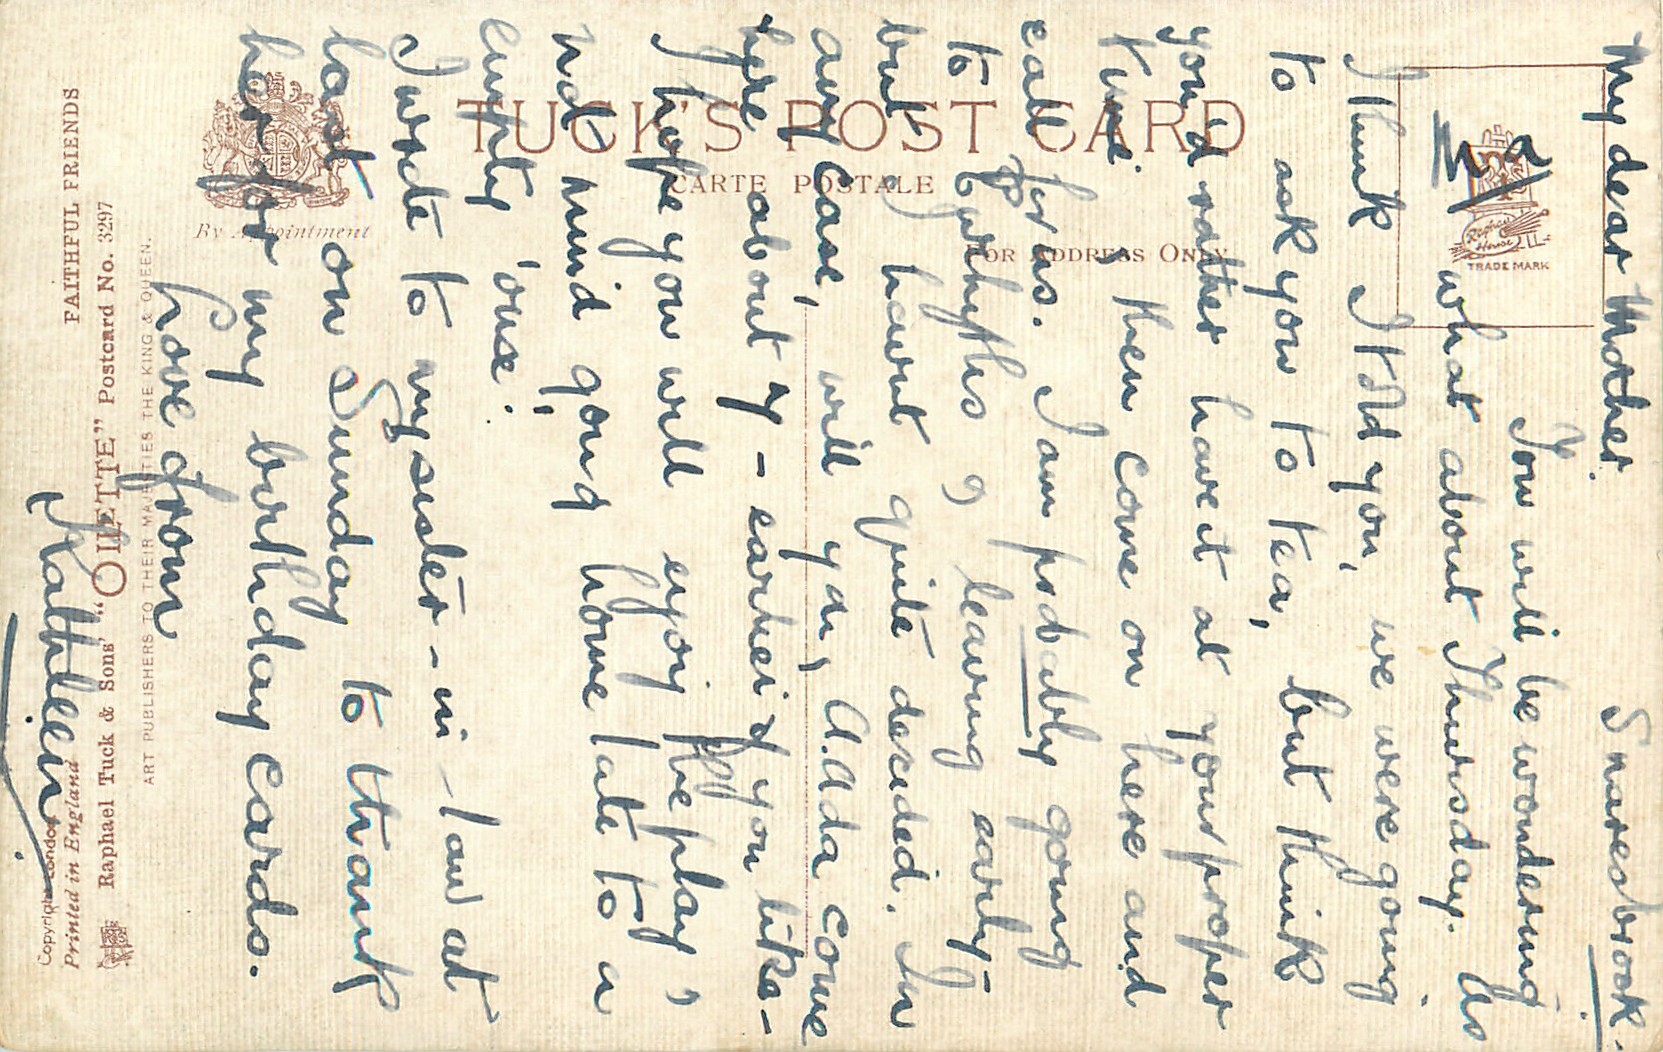 Snaresbrook.
My dear Mother.
You will be wondering
what about Thursday. As
I think I told you, we were going
to ask you to tea, but think
you'd rather have it at your proper
time & then come on here and
call for us. I am probably going
to & leaving early -
but I havent quite decided. In
any case, will you, A. Ada come
here about 7 - earlier if you like -
I hope you will enjoy the play &
not mind going home late to a
empty 'ouse'!
I wrote to my sister-in-law at
last on Sunday to thank
her for my birthday cards.
Love from
Kathleen.
TUCK'S POST CARD
CARTE POSTALE
FOR ADDRESS ONLY
By Appointment
Raphael House
TRADE MARK
FAITHFUL FRIENDS
Raphael Tuck & Sons' "OILETTE" Postcard No. 3297
ART PUBLISHERS TO THEIR MAJESTIES THE KING & QUEEN.
Copyright London
Printed in England